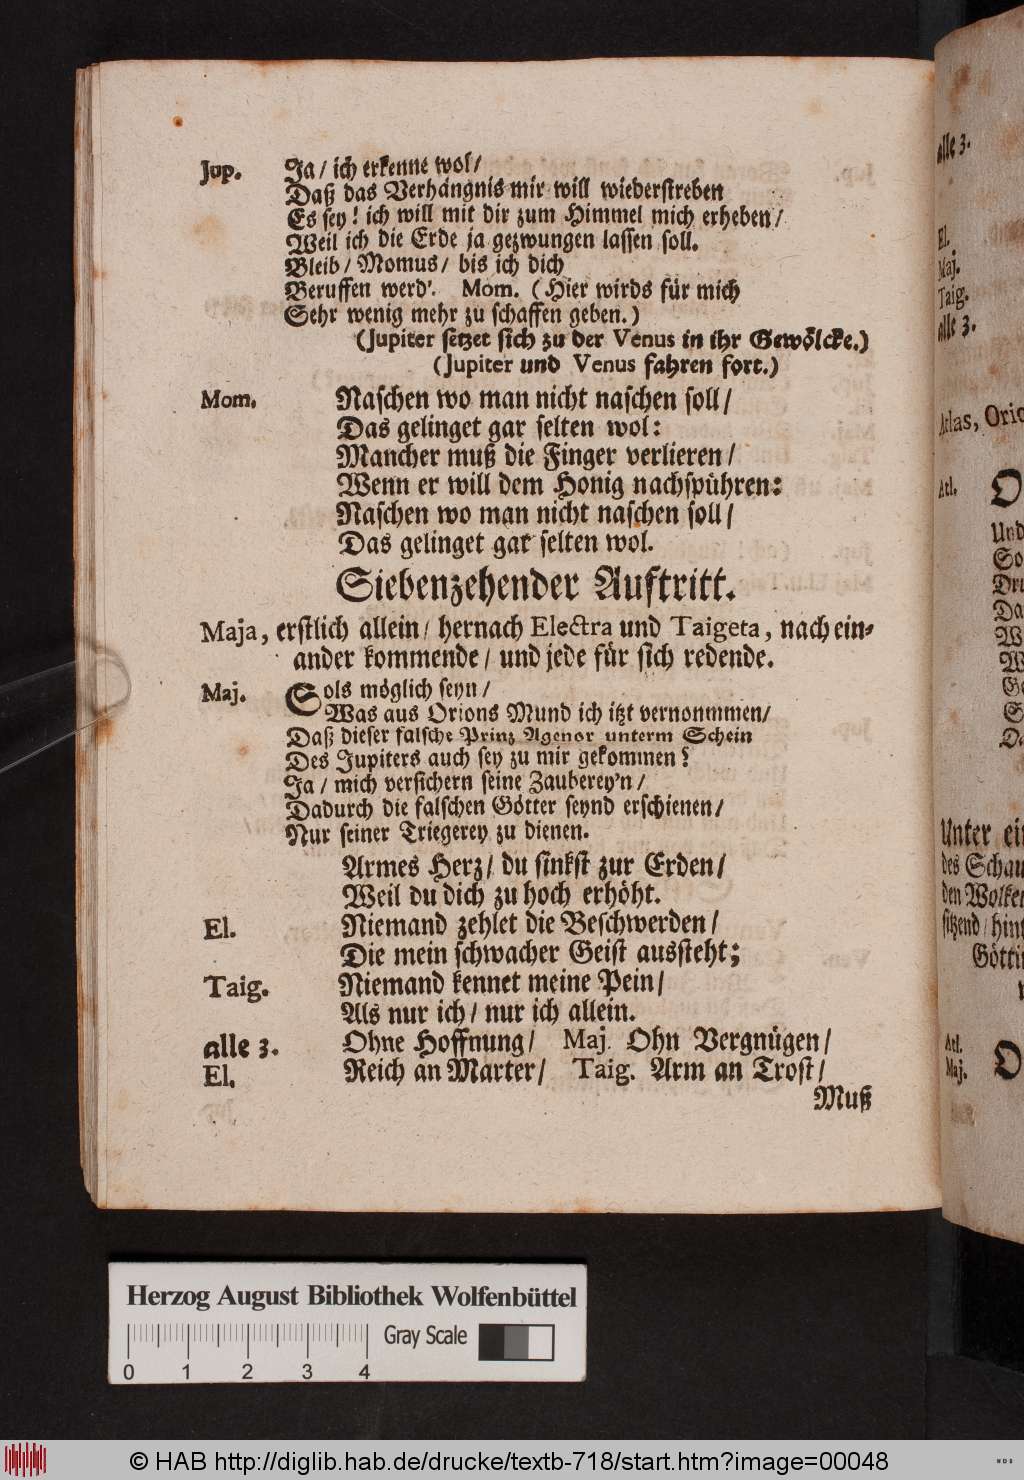 Jup. Ja / ich erkenne wol /
Daß das Verhängnis mir will wiederstreben
Es sey! ich will mit dir zum Himmel mich erheben /
Weil ich die Erde ja gezwungen lassen soll.
Bleib / Momus / bis ich dich
Beruffen werd'. Mom. (Hier wirds für mich
Sehr wenig mehr zu schaffen geben.)
(Jupiter setzet sich zu der Venus in ihr Gewölcke.)
(Jupiter und Venus fahren fort.)
Mom. Naschen wo man nicht naschen soll /
Das gelinget gar selten wol:
Mancher muß die Finger verlieren /
Wenn er will dem Honig nachspühren:
Naschen wo man nicht naschen soll /
Das gelinget gar selten wol.
Siebenzehender Auftritt.
Maja, erstlich allein / hernach Electra und Taigeta, nach ein-
ander kommende / und jede für sich redende.
Maj. Sols möglich seyn /
Was aus Orions Mund ich itzt vernommmen /
Daß dieser falsche Prinz Agenor unterm Schein
Des Jupiters auch sey zu mir gekommen?
Ja / mich versichern seine Zauberey'n /
Dadurch die falschen Götter seynd erschienen /
Nur seiner Triegerey zu dienen.
Armes Herz / du sinkst zur Erden /
Weil du dich zu hoch erhöht.
El. Niemand zehlet die Beschwerden /
Die mein schwacher Geist aussteht;
Taig. Niemand kennet meine Pein /
Als nur ich / nur ich allein.
alle 3. Ohne Hoffnung / Maj. Ohn Vergnügen /
El. Reich an Marter / Taig. Arm an Trost /
Muß
alle 3.
El.
Maj.
Taig.
alle 3.
Atlas,
Atl. O
Und
So
Da
W
W
Ge
Unter
des Schau
den Wolken
sitzend / hint
Atl.
Maj. O
Herzog August Bibliothek Wolfenbüttel
Gray Scale
0 1 2 3 4
© HAB http://diglib.hab.de/drucke/textb-718/start.htm?image=00048